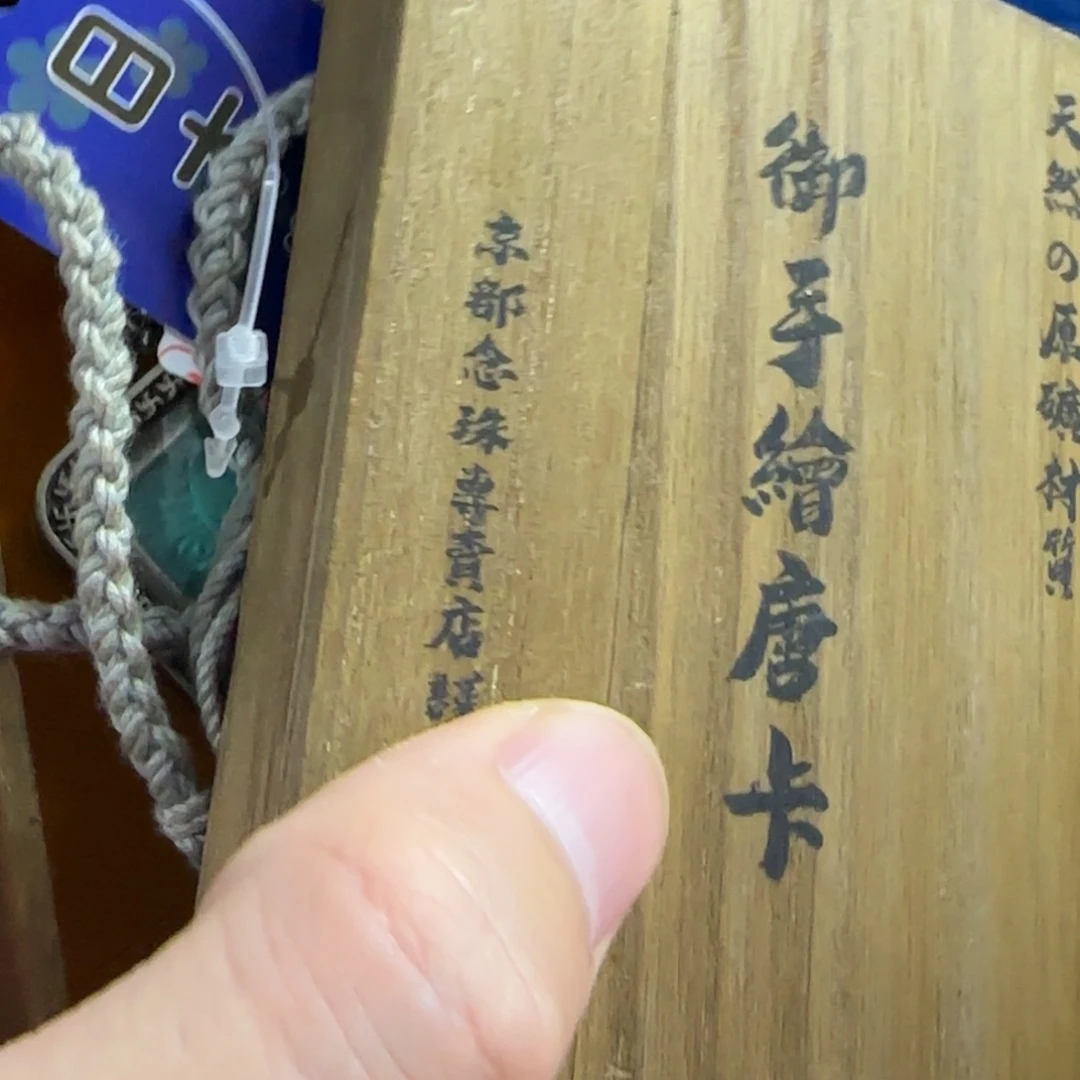 天然の原礦材質
御手繪唐卡
京都念珠專賣店謹
日+